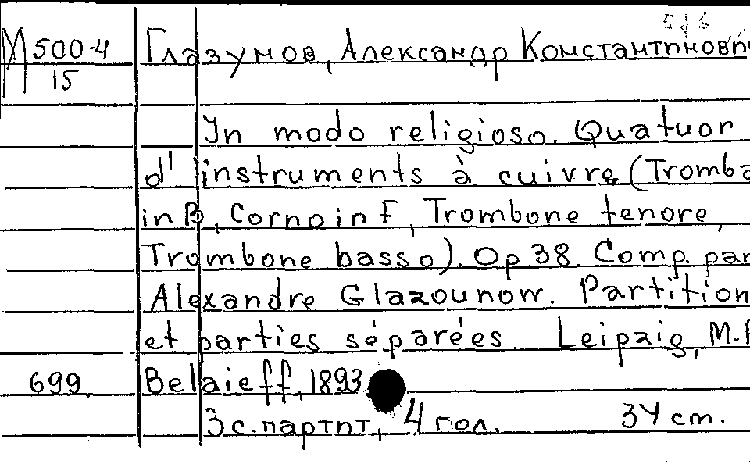 М 500-4 Глазунов, Александр Константинови
15
In modo religioso. Quatuor
d'instruments à cuivre (Tromba
in B, Corno in F, Trombone tenore,
Trombone basso). Op 38. Comp. par
Alexandre Glazounow. Partition
et parties séparées. Leipzig, M.P
699. Belaieff, 1893
3 с. партит, 4 гол. 34 cm.